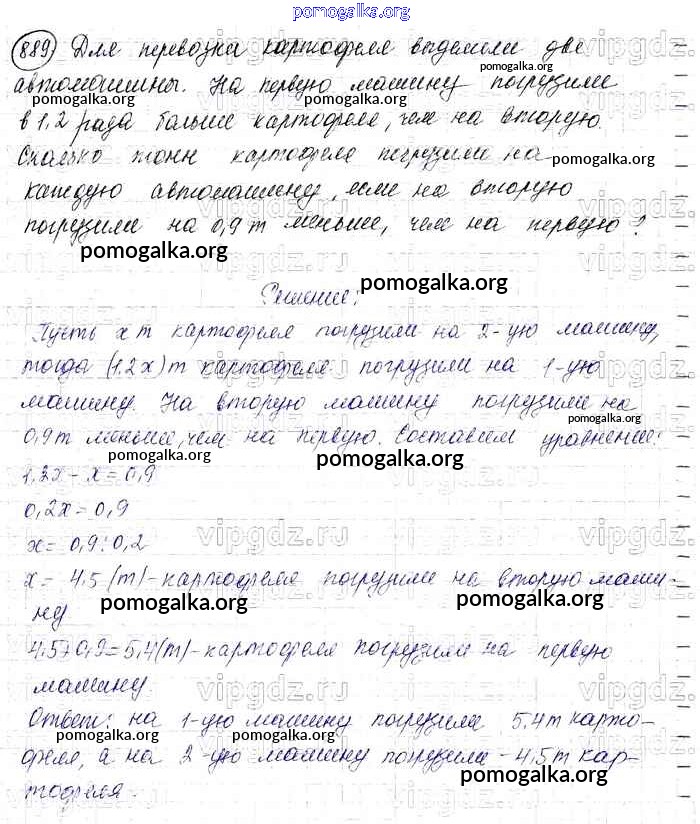 pomogalka.org
889) Для перевозки картофеля выделили две
автомашины. На первую машину погрузили
pomogalka.org pomogalka.org
в 1,2 раза больше картофеля, чем на вторую.
Сколько тонн картофеля погрузили на
pomogalka.org
каждую автомашину, если на вторую
погрузили на 0,9 т меньше, чем на первую?
pomogalka.org
pomogalka.org
Решение:
Пусть x т картофеля погрузили на 2-ую машину,
тогда (1,2x) т картофеля погрузили на 1-ую
машину. На вторую машину погрузили на
pomogalka.org
0,9 т меньше, чем на первую. Составим уравнение:
pomogalka.org
1,2x - x = 0,9
0,2x = 0,9
vipgdz.ru vipgdz.ru
x = 0,9 : 0,2
x = 4,5 (т) - картофеля погрузили на вторую маши-
pomogalka.org pomogalka.org
ну
4,5+0,9=5,4(т)-картофеля погрузили на первую
машину.
vipgdz.ru vipgdz.ru
Ответ: на 1-ую машину погрузили 5,4т карто-
pomogalka.org pomogalka.org
феля, а на 2-ую машину погрузили - 4,5т кар-
pomogalka.org
тофеля.
vipgdz.ru